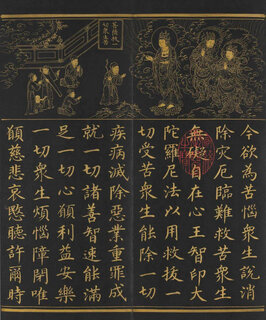 菩薩救
今欲為苦惱眾生說消
除灾厄臨難救苦眾生
無礙自在心王智印大
陀羅尼法以用救拔一
切受苦眾生能除一切
疾病滅除惡業重罪成
就一切諸善智速能滿
足一切心願利益安樂
一切眾生煩惱障閉唯
願慈悲哀愍聽許爾時